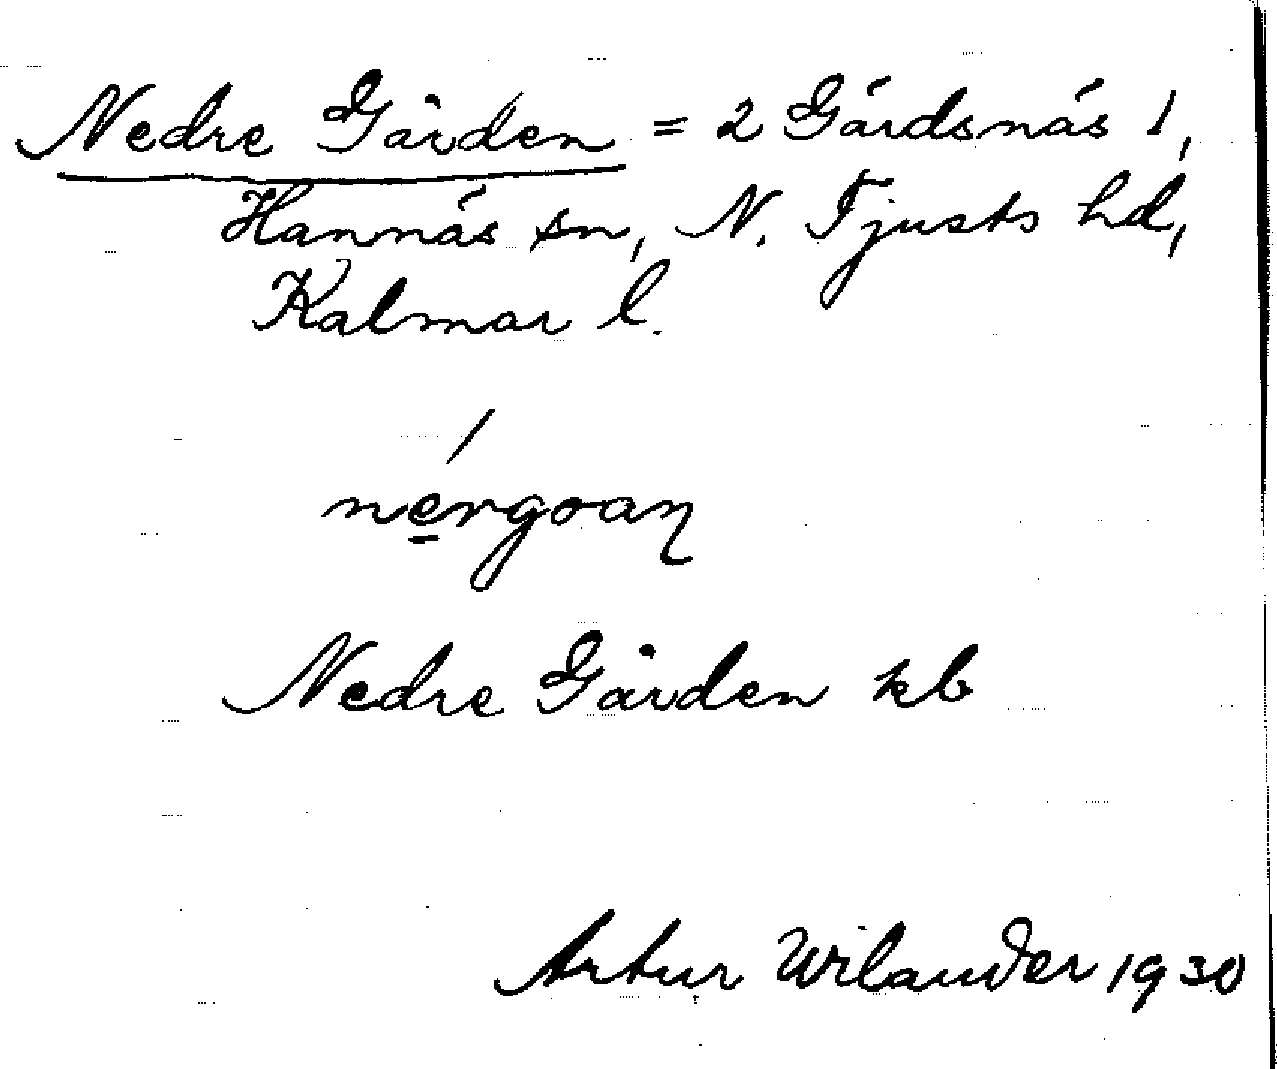 Nedre Gården = 2 Gärdsnäs 1,
Hannäs sn, N. Tjusts hd,
Kalmar l.
Nedre Gården kb
Artur Wilander 1930